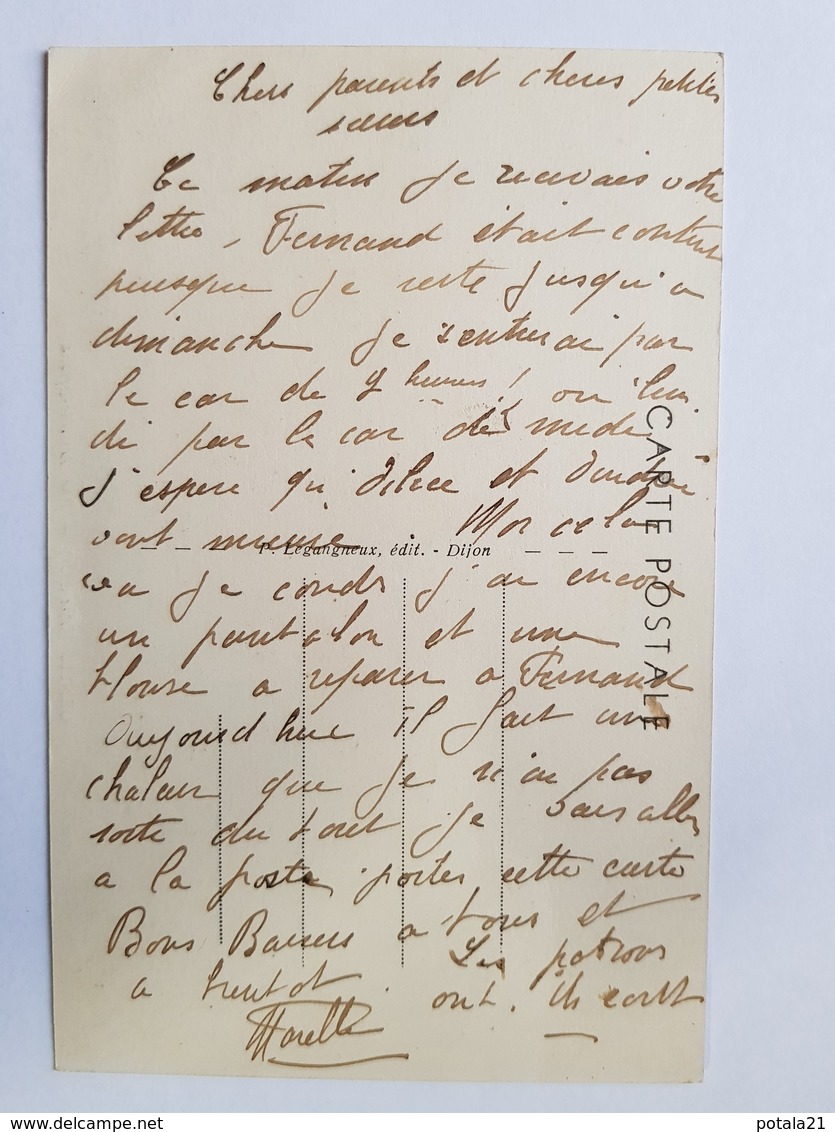 Chers parents et cheres petites
sœurs
Ce matin je recevais votre
lettre, Fernand était content
puisque je reste jusqu'a
dimanche je rentrerai par
le car de 7 heures! ou lun
di par le car de midi
j'espere qu'
et
vont mieux. Moi cela
CARTE POSTALE
P. Legangneux, édit. - Dijon
va je couds j'ai encore
un pantalon et une
blouse a reparer a Fernand
Aujourd hui il fait une
chaleur que je n'ai pas
sorte du tout je vais aller
a la poste porter cette carte
Bons Baisers a tous et
a bientot. Les patrons
ont. ils
delcampe.net
potala21